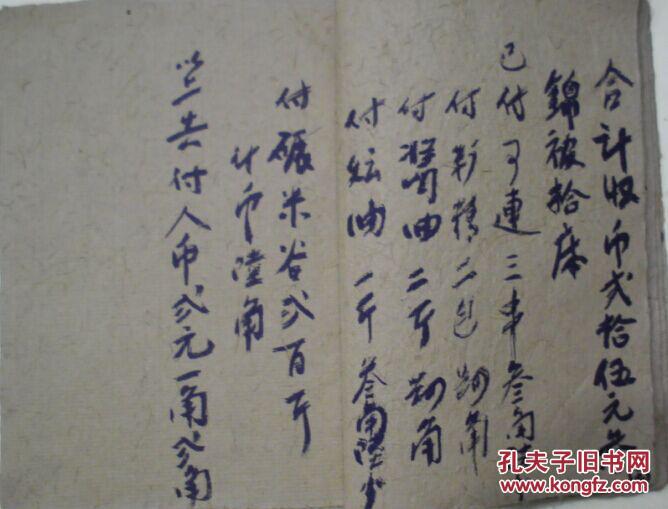 合计收币弍拾伍元叁
錦被拾床
已付 連三串叁角陸
付 精二包 角
付醬油二斤 角
付 油一斤叁角陸分
付碾米谷弍百斤
计币陸角
以上共付人币弍元一角弍角
孔夫子旧书网
www.kongfz.com